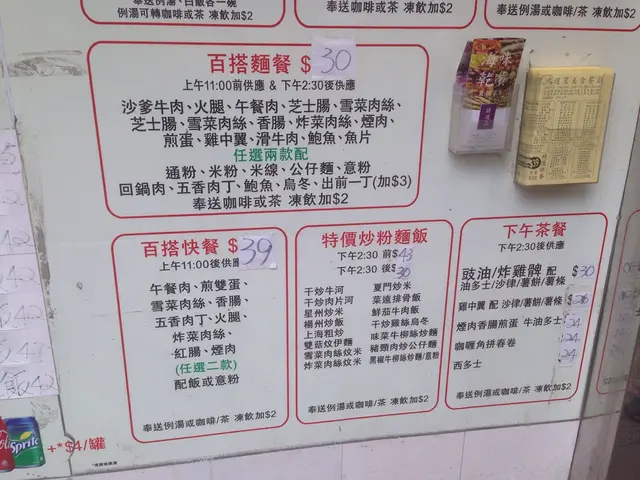 奉送例湯、白飯各一碗
例湯可轉咖啡或茶 凍飲加$2
奉送咖啡或茶 凍飲加$2
奉送例湯或咖啡/茶 凍飲加$2
百搭麵餐 $30
上午11:00前供應 & 下午2:30後供應
沙爹牛肉、火腿、午餐肉、芝士腸、雪菜肉絲、
芝士腸、雪菜肉絲、香腸、炸菜肉絲、煙肉、
煎蛋、雞中翼、滑牛肉、鮑魚、魚片
任選兩款配
通粉、米粉、米線、公仔麵、意粉
回鍋肉、五香肉丁、鮑魚、烏冬、出前一丁(加$3)
奉送咖啡或茶 凍飲加$2
百搭快餐 $39
上午11:00後供應
午餐肉、煎雙蛋、
雪菜肉絲、香腸、
五香肉丁、火腿、
炸菜肉絲、
紅腸、煙肉
(任選二款)
配飯或意粉
奉送例湯或咖啡/茶 凍飲加$2
特價炒粉麵飯
下午2:30 前$43
下午2:30 後$30
干炒牛河
干炒肉片河
星州炒米
楊州炒飯
上海粗炒
雙菇炆伊麵
雪菜肉絲炆米
炸菜肉絲炆米
夏門炒米
菜遠排骨飯
鮮茄牛肉飯
干炒雞絲烏冬
味菜牛柳絲炒麵
豬頸肉炒公仔麵
黑椒牛柳絲炒麵/意粉
奉送例湯或咖啡/茶 凍飲加$2
下午茶餐
下午2:30後供應
豉油/炸雞髀 配 $30
油多士/沙律/薯餅/薯條
雞中翼 配 沙律/薯餅/薯條 $26
煙肉香腸煎蛋 牛油多士 $24
咖喱角拼春卷 $24
西多士 $24
奉送咖啡或茶 凍飲加$2
Sprite
+*$4/罐